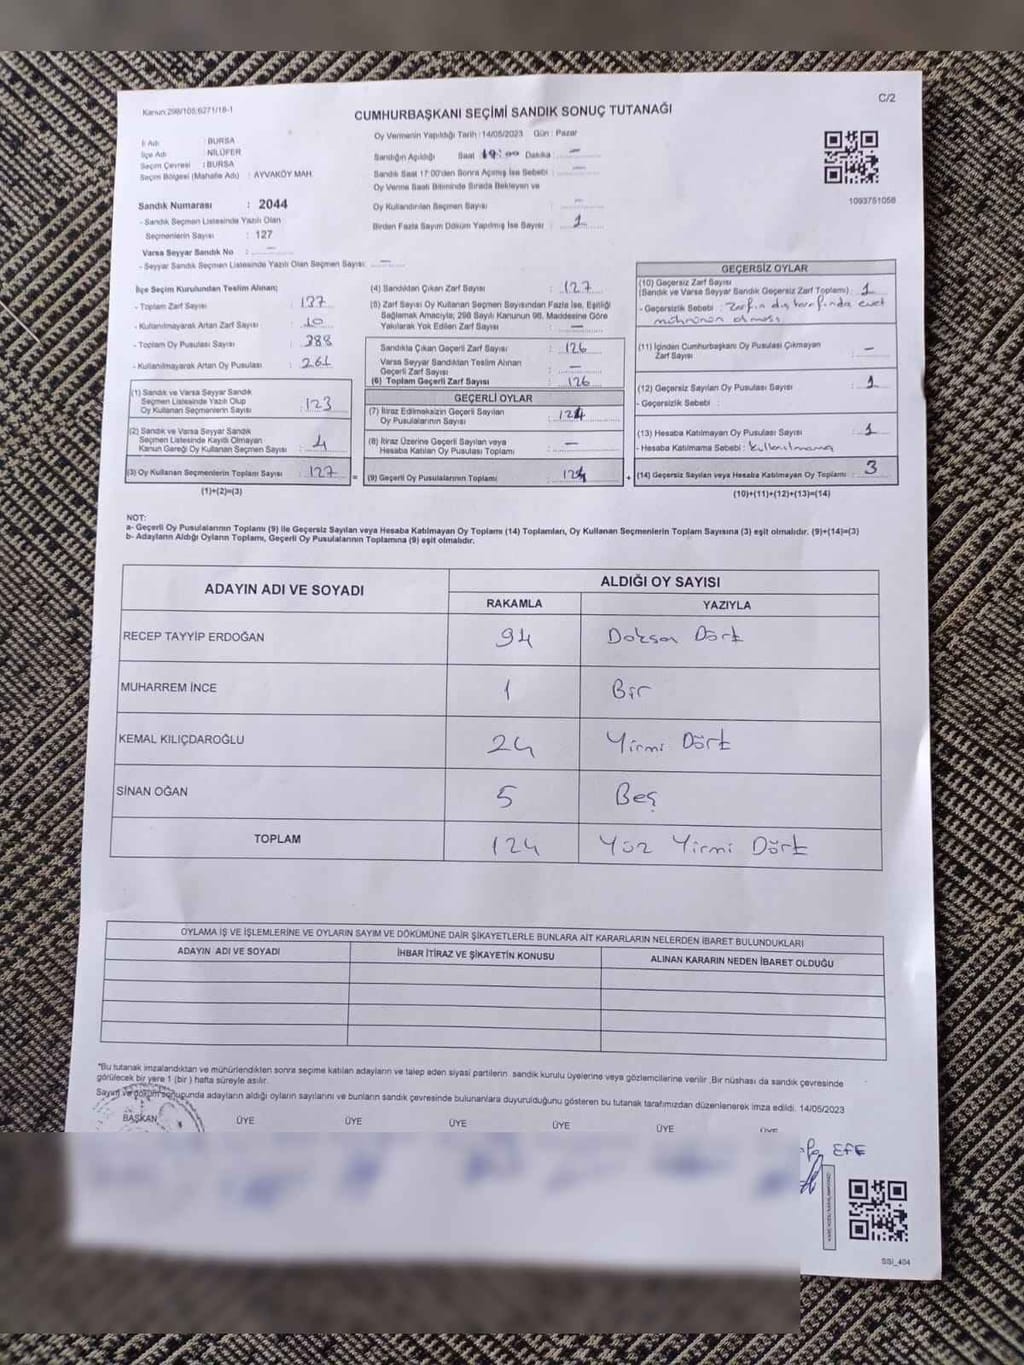 Kanun:298/105;6271/18-1
C/2
CUMHURBAŞKANI SEÇİMİ SANDIK SONUÇ TUTANAĞI
İl Adı : BURSA
İlçe Adı : NİLÜFER
Seçim Çevresi : BURSA
Seçim Bölgesi (Mahalle Adı) : AYVAKÖY MAH.
Sandık Numarası : 2044
- Sandık Seçmen Listesinde Yazılı Olan
Seçmenlerin Sayısı : 127
Varsa Seyyar Sandık No : —
- Seyyar Sandık Seçmen Listesinde Yazılı Olan Seçmen Sayısı: —
Oy Vermenin Yapıldığı Tarih : 14/05/2023 Gün : Pazar
Sandığın Açıldığı Saat 19:00 Dakika : —
Sandık Saat 17:00'den Sonra Açılmış İse Sebebi : —
Oy Verme Saati Bitiminde Sırada Bekleyen ve
Oy Kullandırılan Seçmen Sayısı : —
Birden Fazla Sayım Döküm Yapılmış İse Sayısı : 1
1093751058
İlçe Seçim Kurulundan Teslim Alınan;
- Toplam Zarf Sayısı : 137
- Kullanılmayarak Artan Zarf Sayısı : 10
- Toplam Oy Pusulası Sayısı : 388
- Kullanılmayarak Artan Oy Pusulası : 261
(1) Sandık ve Varsa Seyyar Sandık
Seçmen Listesinde Yazılı Olup
Oy Kullanan Seçmenlerin Sayısı : 123
(2) Sandık ve Varsa Seyyar Sandık
Seçmen Listesinde Kaydı Olmayan
Kanun Gereği Oy Kullanan Seçmen Sayısı : 4
(3) Oy Kullanan Seçmenlerin Toplam Sayısı : 127
(1)+(2)=(3)
(4) Sandıktan Çıkan Zarf Sayısı : 127
(5) Zarf Sayısı Oy Kullanan Seçmen Sayısından Fazla İse, Eşitliği
Sağlamak Amacıyla; 298 Sayılı Kanunun 98. Maddesine Göre
Yakılarak Yok Edilen Zarf Sayısı : —
Sandıkta Çıkan Geçerli Zarf Sayısı : 126
Varsa Seyyar Sandıktan Teslim Alınan
Geçerli Zarf Sayısı : —
(6) Toplam Geçerli Zarf Sayısı : 126
GEÇERLİ OYLAR
(7) İtiraz Edilmeksizin Geçerli Sayılan
Oy Pusulalarının Sayısı : 124
(8) İtiraz Üzerine Geçerli Sayılan veya
Hesaba Katılan Oy Pusulası Toplamı : —
(9) Geçerli Oy Pusulalarının Toplamı : 124
GEÇERSİZ OYLAR
(10) Geçersiz Zarf Sayısı
(Sandık ve Varsa Seyyar Sandık Geçersiz Zarf Toplamı) : 1
- Geçersizlik Sebebi : Zarfın dış tarafında evet
mührünün olması
(11) İçinden Cumhurbaşkanı Oy Pusulası Çıkmayan
Zarf Sayısı : —
(12) Geçersiz Sayılan Oy Pusulası Sayısı : 1
- Geçersizlik Sebebi :
(13) Hesaba Katılmayan Oy Pusulası Sayısı : 1
- Hesaba Katılmama Sebebi : kullanılmama
(14) Geçersiz Sayılan veya Hesaba Katılmayan Oy Toplamı : 3
(10)+(11)+(12)+(13)=(14)
NOT:
a- Geçerli Oy Pusulalarının Toplamı (9) ile Geçersiz Sayılan veya Hesaba Katılmayan Oy Toplamı (14) Toplamları, Oy Kullanan Seçmenlerin Toplam Sayısına (3) eşit olmalıdır. (9)+(14)=(3)
b- Adayların Aldığı Oyların Toplamı, Geçerli Oy Pusulalarının Toplamına (9) eşit olmalıdır.
ADAYIN ADI VE SOYADI ALDIĞI OY SAYISI
RAKAMLA YAZIYLA
RECEP TAYYİP ERDOĞAN 94 Doksan Dört
MUHARREM İNCE 1 Bir
KEMAL KILIÇDAROĞLU 24 Yirmi Dört
SİNAN OĞAN 5 Beş
TOPLAM 124 Yüz Yirmi Dört
OYLAMA İŞ VE İŞLEMLERİNE VE OYLARIN SAYIM VE DÖKÜMÜNE DAİR ŞİKAYETLERLE BUNLARA AİT KARARLARIN NELERDEN İBARET BULUNDUKLARI
ADAYIN ADI VE SOYADI İHBAR İTİRAZ VE ŞİKAYETİN KONUSU ALINAN KARARIN NEDEN İBARET OLDUĞU
*Bu tutanak imzalandıktan ve mühürlendikten sonra seçime katılan adayların ve talep eden siyasi partilerin sandık kurulu üyelerine veya gözlemcilerine verilir. Bir nüshası da sandık çevresinde
görülecek bir yere 1 (bir) hafta süreyle asılır.
Sayım ve döküm sonucunda adayların aldığı oyların sayılarını ve bunların sandık çevresinde bulunanlara duyurulduğunu gösteren bu tutanak tarafımızdan düzenlenerek imza edildi. 14/05/2023
BAŞKAN ÜYE ÜYE ÜYE ÜYE ÜYE ÜYE
EFE
SSİ_404